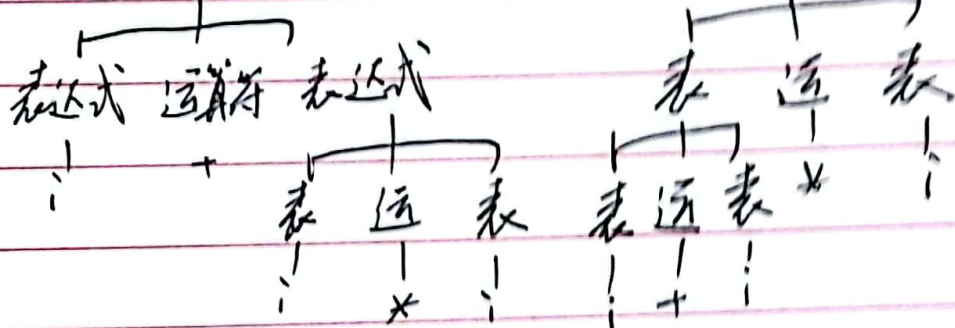 表达式 运算符 表达式 表 运 表
i + 表 运 表 表 运 表 * i
i * i i + i